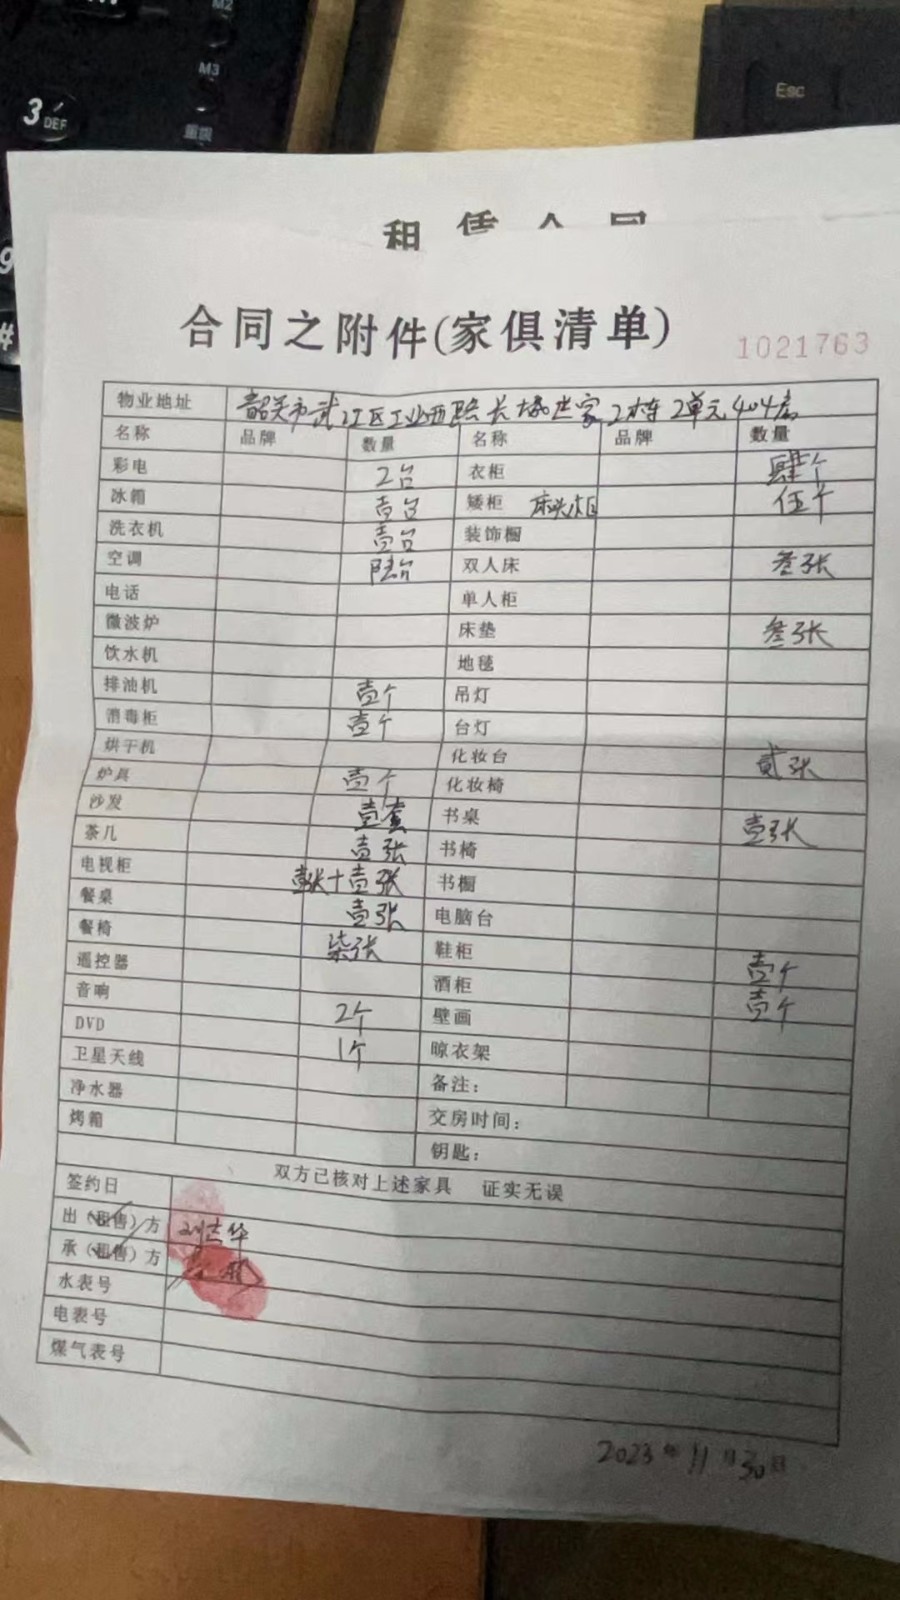 M2
M3
3 DEF
重拨
Esc
9
#
租赁合同
合同之附件(家俱清单)
1021763
物业地址 韶关市武江区工业西路长 世家2栋2单元404房
名称 品牌 数量 名称 品牌 数量
彩电 2台 衣柜 肆个
冰箱 壹台 矮柜 床头柜 伍个
洗衣机 壹台 装饰橱
空调 陆台 双人床 叁张
电话 单人柜
微波炉 床垫 叁张
饮水机 地毯
排油机 壹个 吊灯
消毒柜 壹个 台灯
烘干机 化妆台 贰张
炉具 壹个 化妆椅
沙发 壹套 书桌 壹张
茶几 壹张 书椅
电视柜 壹张+壹张 书橱
餐桌 壹张 电脑台
餐椅 柒张 鞋柜 壹个
遥控器 酒柜 壹个
音响 2个 壁画
DVD 1个 晾衣架
卫星天线 备注:
净水器 交房时间:
烤箱 钥匙:
双方已核对上述家具 证实无误
签约日
出(租售)方
承(租售)方
水表号
电表号
煤气表号
2023年11月30日